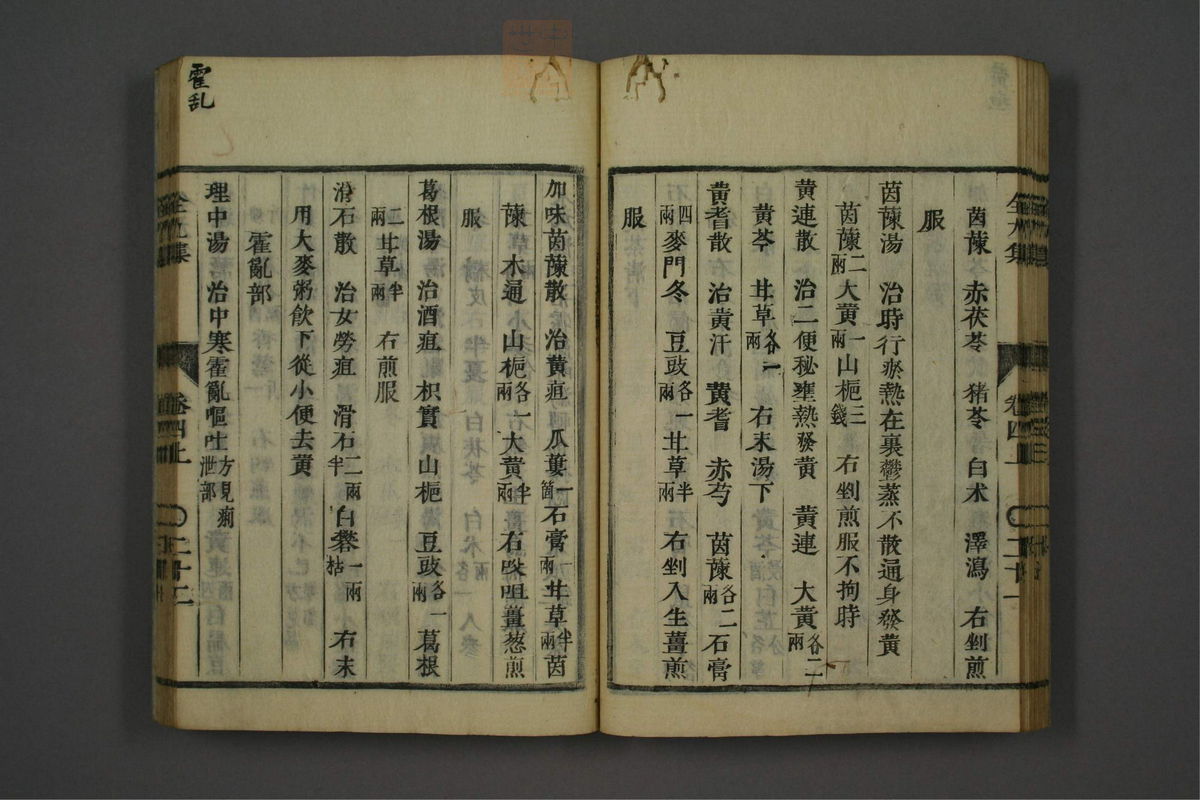 茵蔯 赤茯苓 猪苓 白术 澤瀉 右剉煎
服
茵蔯湯 治時行瘀熱在裏鬱蒸不散通身發黃
茵蔯二兩大黃一兩山梔三錢 右剉煎服不拘時
黃連散 治二便秘壅熱發黃 黃連 大黃各二兩
黃芩 甘草各一兩 右末湯下
黃耆散 治黃汗 黃耆 赤芍 茵蔯各二兩石膏
四兩麥門冬 豆豉各一兩甘草半兩 右剉入生薑煎
服
全九集 卷四上 二十一
加味茵蔯散 治黃疸 瓜蔞一箇石膏一兩甘草半兩茵
蔯 木通 山梔各一兩大黃半兩右㕮咀薑葱煎
服
葛根湯 治酒疸 枳實 山梔 豆豉各一兩葛根
二兩甘草半兩 右煎服
滑石散 治女勞疸 滑石二兩半白礬一兩枯 右末
用大麥粥飲下從小便去黃
霍亂部
理中湯 治中寒霍亂嘔吐方見痢泄部
全九集 卷四上 二十二
霍乱